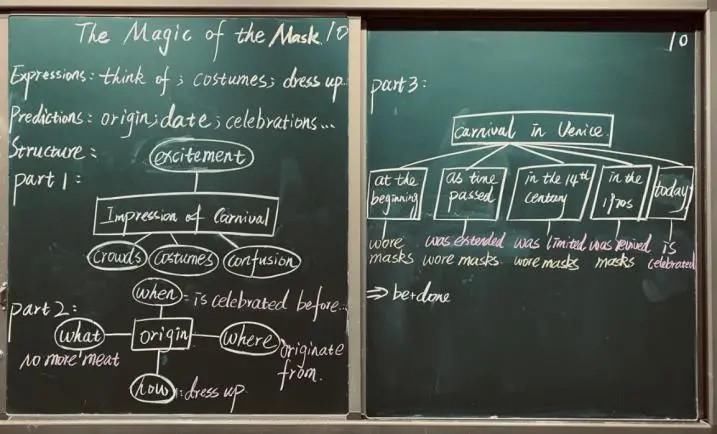 The Magic of the Mask.10
Expressions: think of; costumes; dress up...
Predictions: origin; date; celebrations...
Structure:
excitement
part 1:
Impression of Carnival
crowds costumes confusion
part 2:
when = is celebrated before...
what origin where originate from.
no more meat
how : dress up
10
part 3:
Carnival in Venice
at the beginning
as time passed
in the 14th century
in the 1970s
today
wore masks
was extended
wore masks
was limited
wore masks
was revived
masks
is celebrated
⇒ be+done